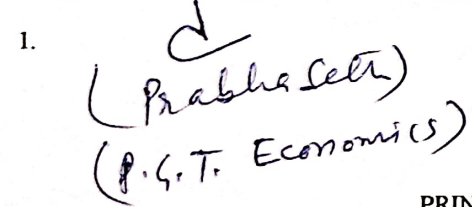 1.
(Prabha Seth)
(P.G.T. Economics)
PRIN